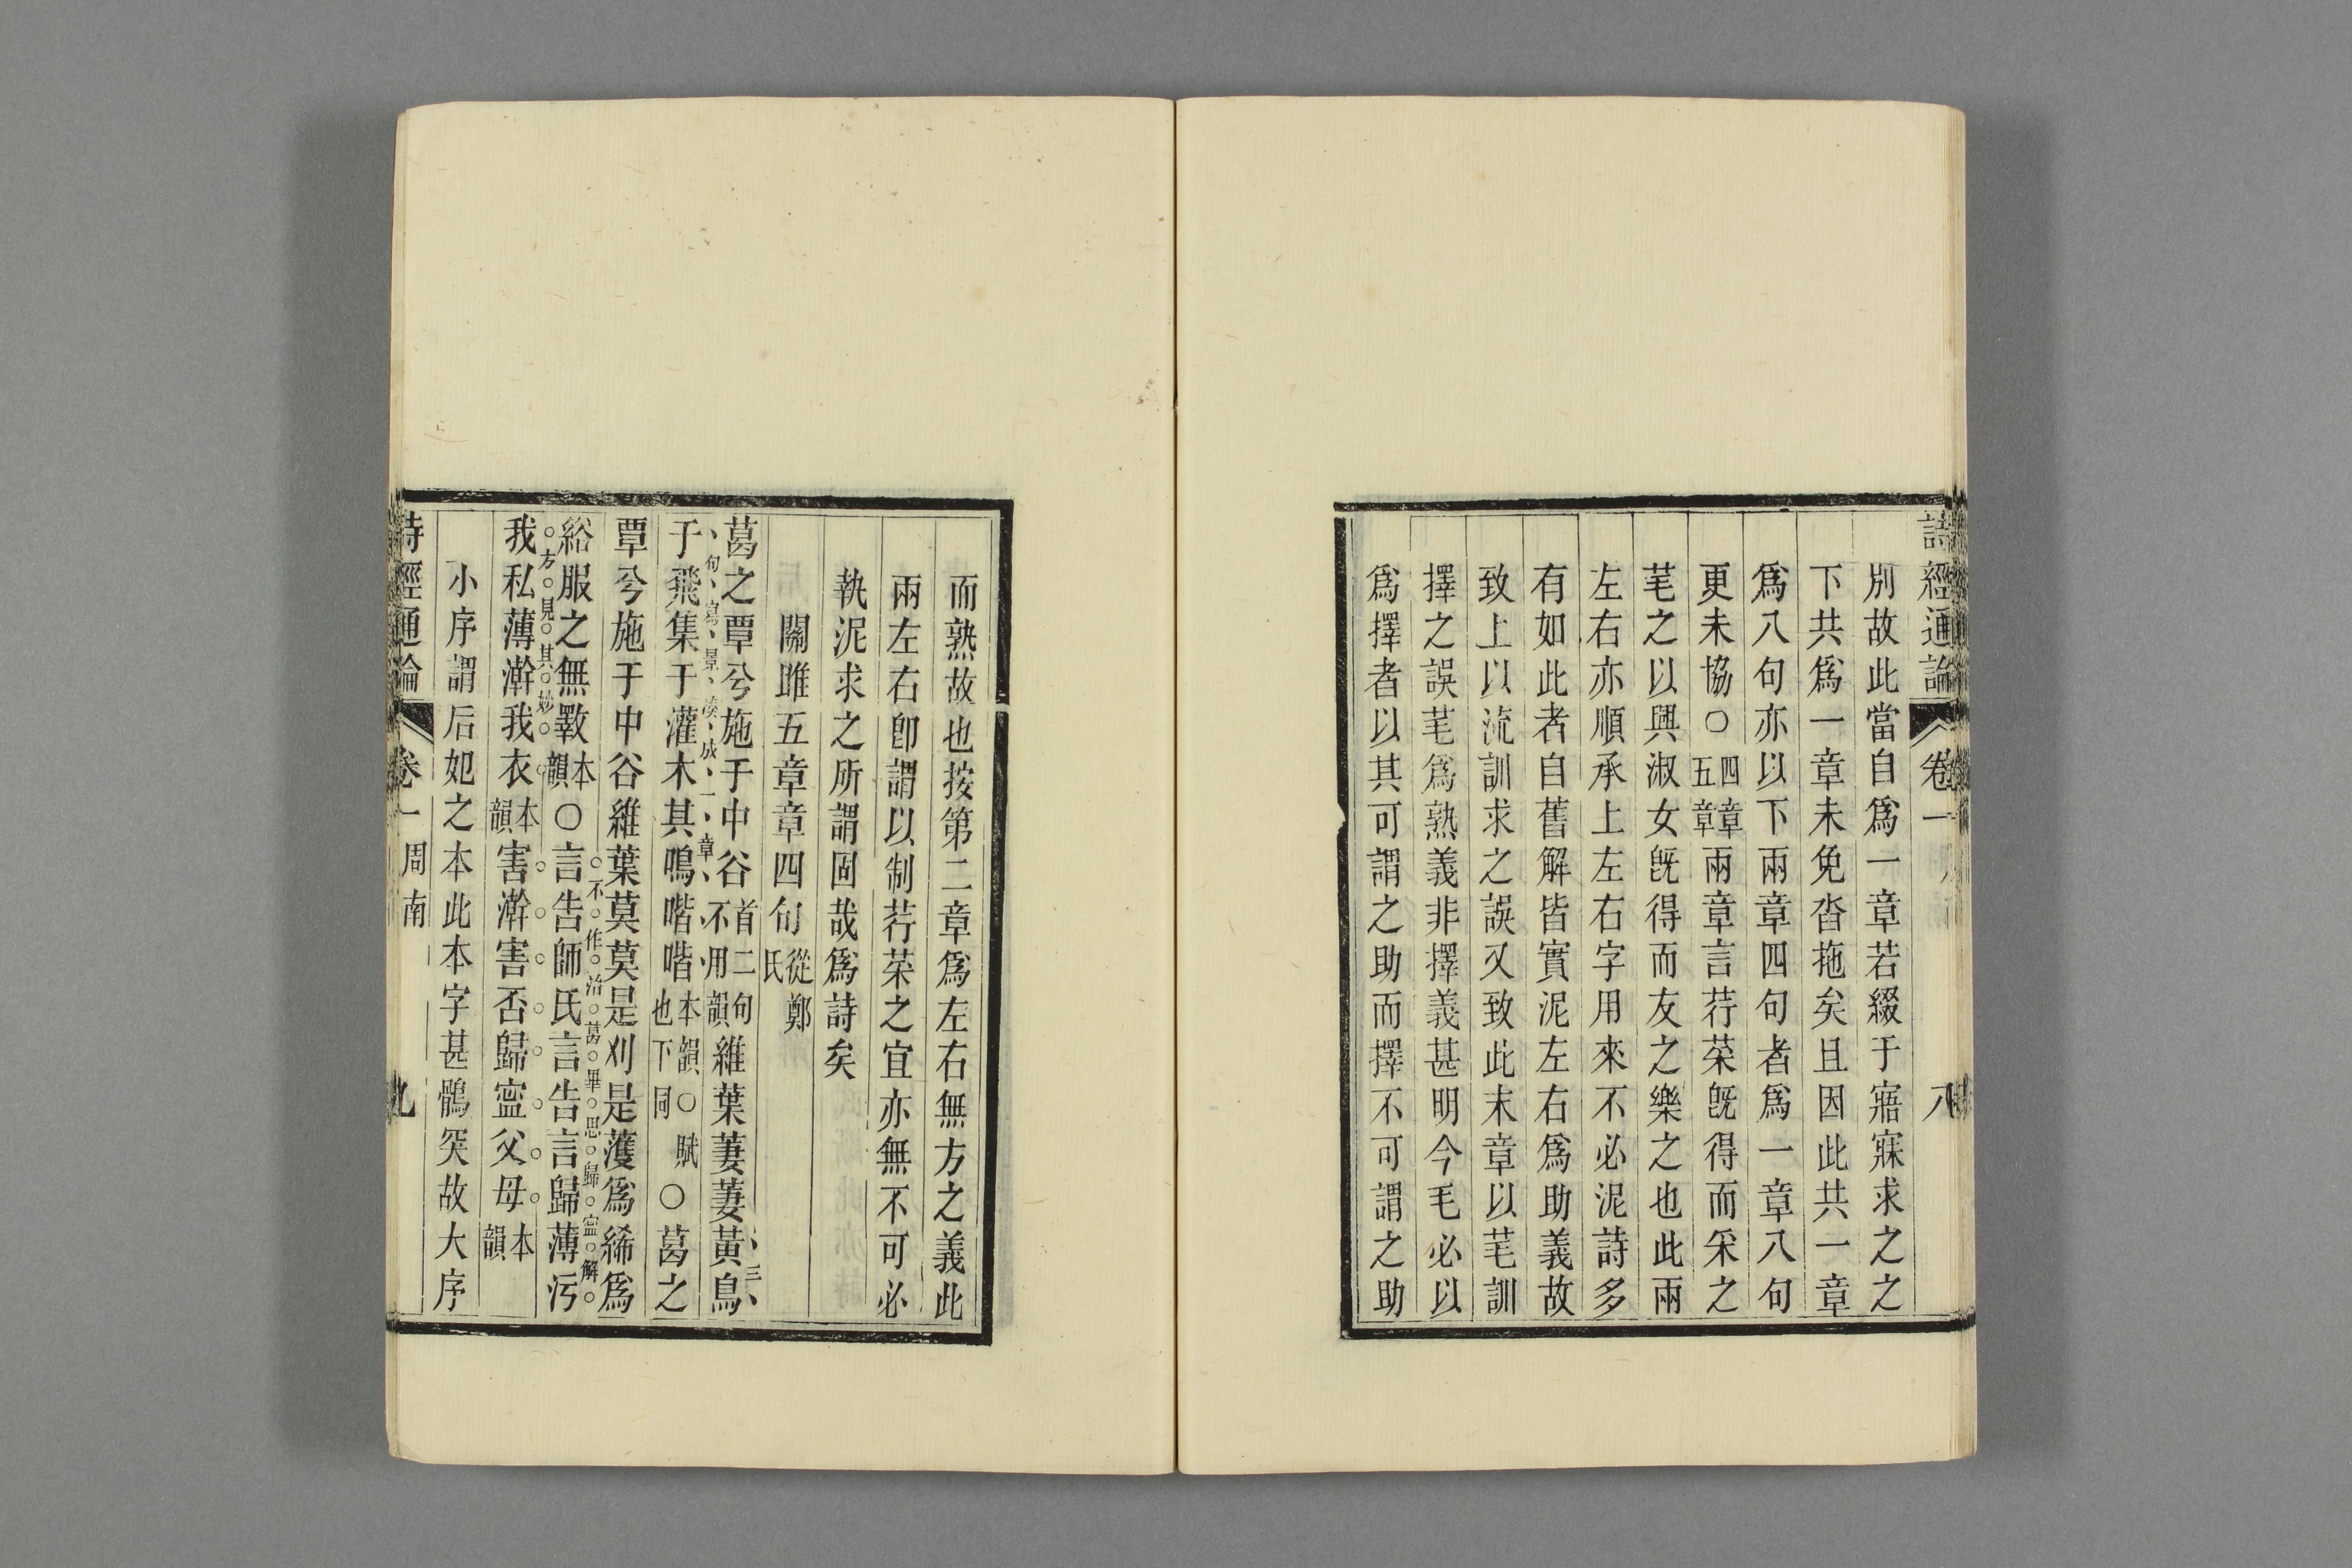 詩經通論 卷一 八
別故此當自爲一章若綴于寤寐求之之
下共爲一章未免沓拖矣且因此共一章
爲八句亦以下兩章四句者爲一章八句
更未協○四章五章兩章言荇菜既得而采之
芼之以興淑女既得而友之樂之也此兩
左右亦順承上左右字用來不必泥詩多
有如此者自舊解皆實泥左右爲助義故
致上以流訓求之誤又致此末章以芼訓
擇之誤芼爲熟義非擇義甚明今毛必以
爲擇者以其可謂之助而擇不可謂之助
而熟故也按第二章爲左右無方之義此
兩左右卽謂以制荇菜之宜亦無不可必
執泥求之所謂固哉爲詩矣
關雎五章章四句從鄭氏
葛之覃兮施于中谷首二句不用韻維葉萋萋黃鳥
三句寫景湊成一章
于飛集于灌木其鳴喈喈本韻也下同○賦○葛之
覃兮施于中谷維葉莫莫是刈是濩爲絺爲
不作治葛畢思歸寧解
綌服之無斁本韻○言告師氏言告言歸薄污
方見其妙
我私薄澣我衣本韻害澣害否歸寧父母本韻
小序謂后妃之本此本字甚鶻突故大序
詩經通論 卷一 周南 九